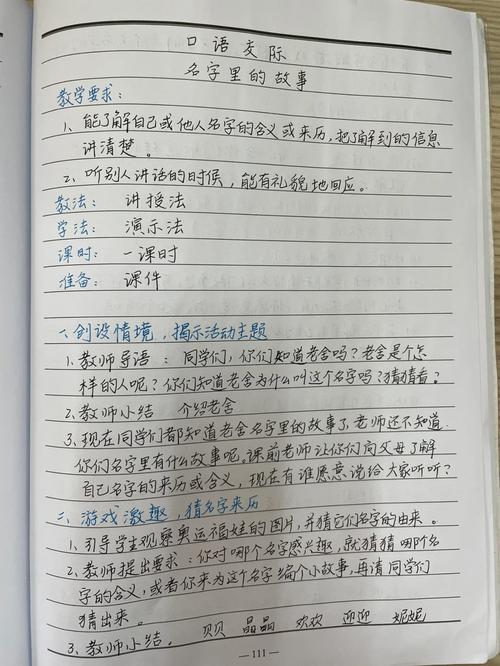 口语交际
名字里的故事
教学要求：
1、能了解自己或他人名字的含义或来历，把了解到的信息
讲清楚。
2、听别人讲话的时候，能有礼貌地回应。
教法： 讲授法
学法： 演示法
课时： 一课时
准备： 课件
一、创设情境，揭示活动主题
1、教师导语：同学们，你们知道老舍吗？老舍是个怎
样的人呢？你们知道老舍为什么叫这个名字吗？猜猜看？
2、教师小结 介绍老舍
3、现在同学们都知道老舍名字里的故事了，老师还不知道
你们名字里有什么故事呢。课前老师让你们向父母了解
自己名字的来历或含义，现在有谁愿意说给大家听听？
二、游戏激趣，猜名字来历
1、引导学生观察奥运福娃的图片，并猜它们名字的由来。
2、教师提出要求：你对哪个名字感兴趣，就猜猜哪个名
字的含义，或者你来为这个名字编个小故事，再请同学们
猜出来。
3、教师小结。 贝贝 晶晶 欢欢 迎迎 妮妮
—111—